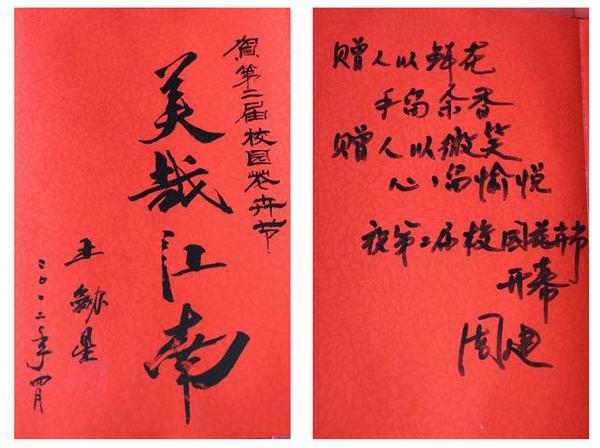 贺第二届校园花卉节
美哉江南
王 星
二〇一二年四月
赠人以鲜花
手留余香
赠人以微笑
心留愉悦
祝第二届校园花卉节
开幕
周建